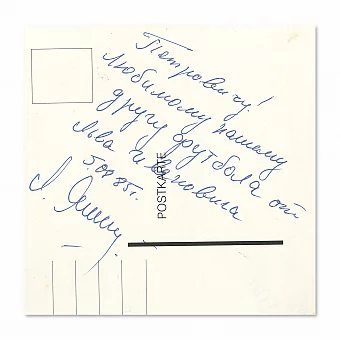 Петровичу!
Любимому нашему
другу футбола от
Льва Ивановича
5.08.85г.
Л. Яшин
POSTKARTE